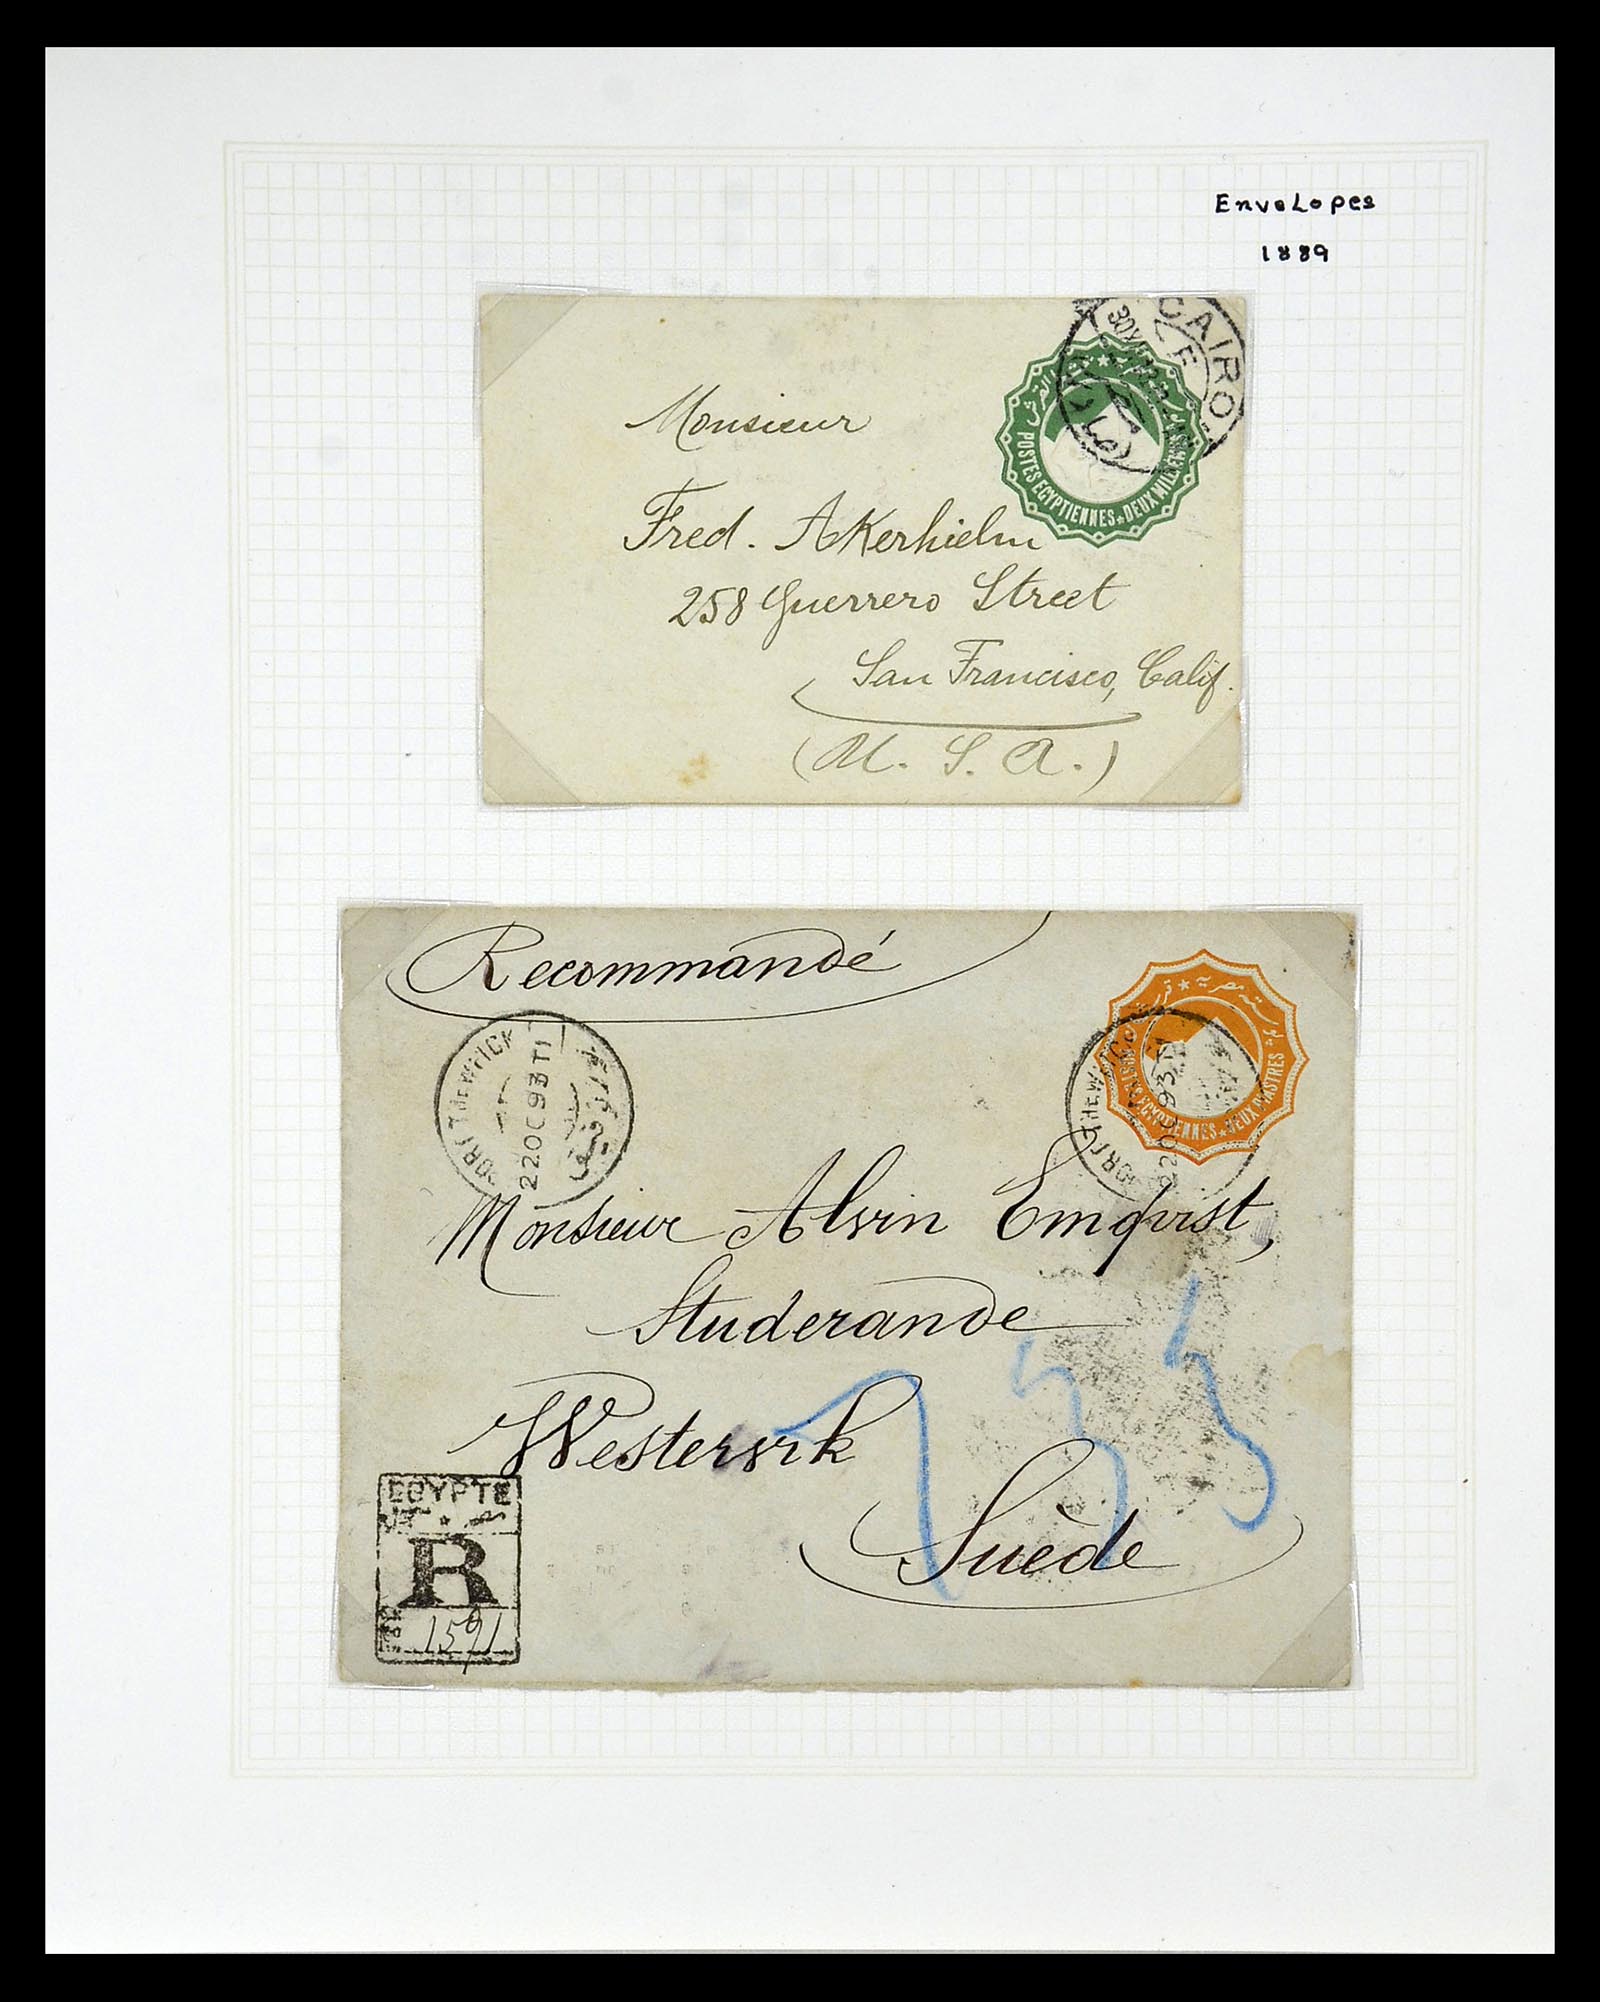 Envelopes
1889
CAIRO
POSTES EGYPTIENNES * DEUX MILLIEMES
Monsieur
Fred. Akerhielm
258 Guerrero Street
San Francisco, Calif.
(U. S. A.)
Recommandé
PORT THEWFICK
22 OC 93 T1
POSTES EGYPTIENNES * DEUX PIASTRES
PORT THEWFICK
22 OC 93 T1
Monsieur Alvin Emqvist,
Studerande
Westervik
Suède
EGYPTE
R
1591